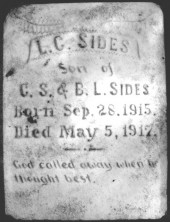 L.C. SIDES
Son of
C. S. & B. L. SIDES
Born Sep. 28. 1915.
Died May 5, 1917.
God called away when he
thought best.